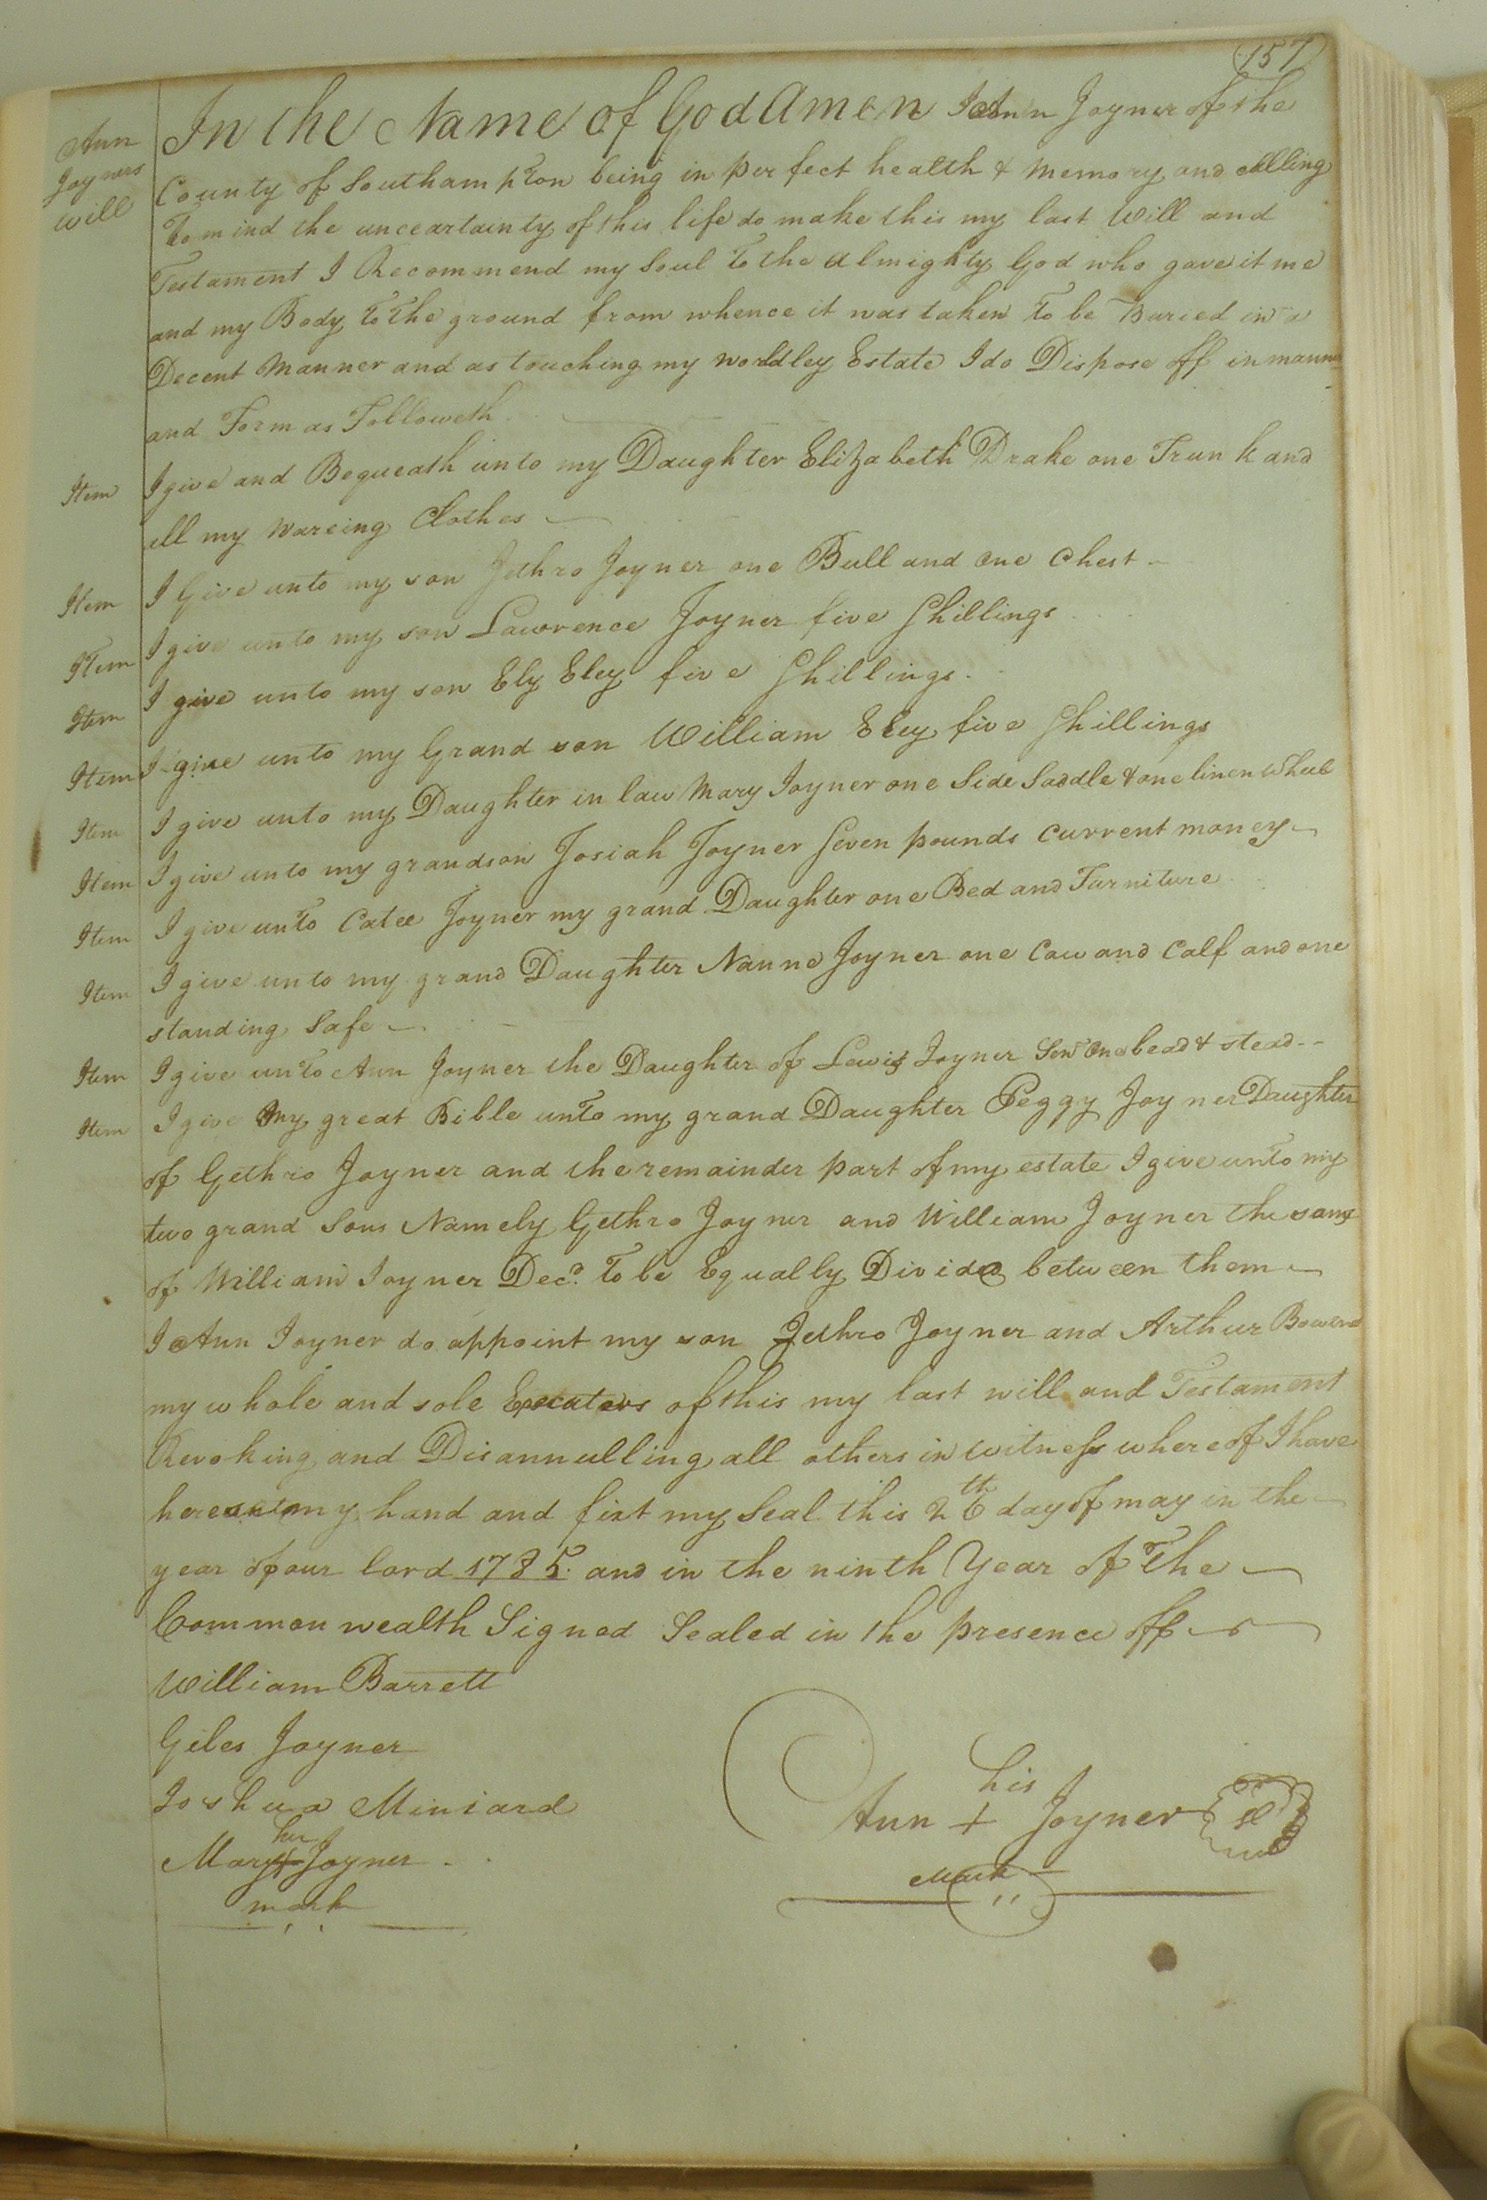 157
Ann
Joyners
Will
In the Name of God Amen I Ann Joyner of the
County of Southampton being in perfect health & memory and calling
To mind the unceartainty of this life do make this my last Will and
Testament I Recommend my Soul To the Almighty God who gave it me
and my Body To the ground from whence it was taken To be Buried in a
Decent Manner and as touching my worldley Estate I do Dispose off in manner
and Form as Followeth
Item I give and Bequeath unto my Daughter Elizabeth Drake one Trunk and
all my Wareing Clothes
Item I Give unto my son Jethro Joyner one Bull and one Chest
Item I give unto my son Lawrence Joyner five Shillings
Item I give unto my son Ely Eley five Shillings
Item I give unto my Grand son William Eley five Shillings
Item I give unto my Daughter in law Mary Joyner one Side Saddle & one linen Wheel
Item I give unto my grandson Josiah Joyner Seven pounds current money
Item I give unto Catee Joyner my grand Daughter one Bed and Furniture
Item I give unto my grand Daughter Nanne Joyner one Cow and Calf and one
standing Safe
Item I give unto Ann Joyner the Daughter of Lewis Joyner Senr one bead & stead
Item I give my great Bible unto my grand Daughter Peggy Joyner Daughter
of Gethro Joyner and the remainder part of my estate I give unto my
two grand Sons Namely Gethro Joyner and William Joyner the sons
of William Joyner Decd. To be Equally Divided between them
I Ann Joyner do appoint my son Jethro Joyner and Arthur Bowen
my whole and sole Executors of this my last will and Testament
Revoking and Disannulling all others in witness whereof I have
hereunto my hand and fixt my Seal this 26th day of may in the
year of our lord 1785. and in the ninth Year of The
Common wealth Signed Sealed in the presence off
William Barrett
Giles Joyner
Joshua Miniard
her
Mary + Joyner
mark
his
Ann + Joyner
Mark